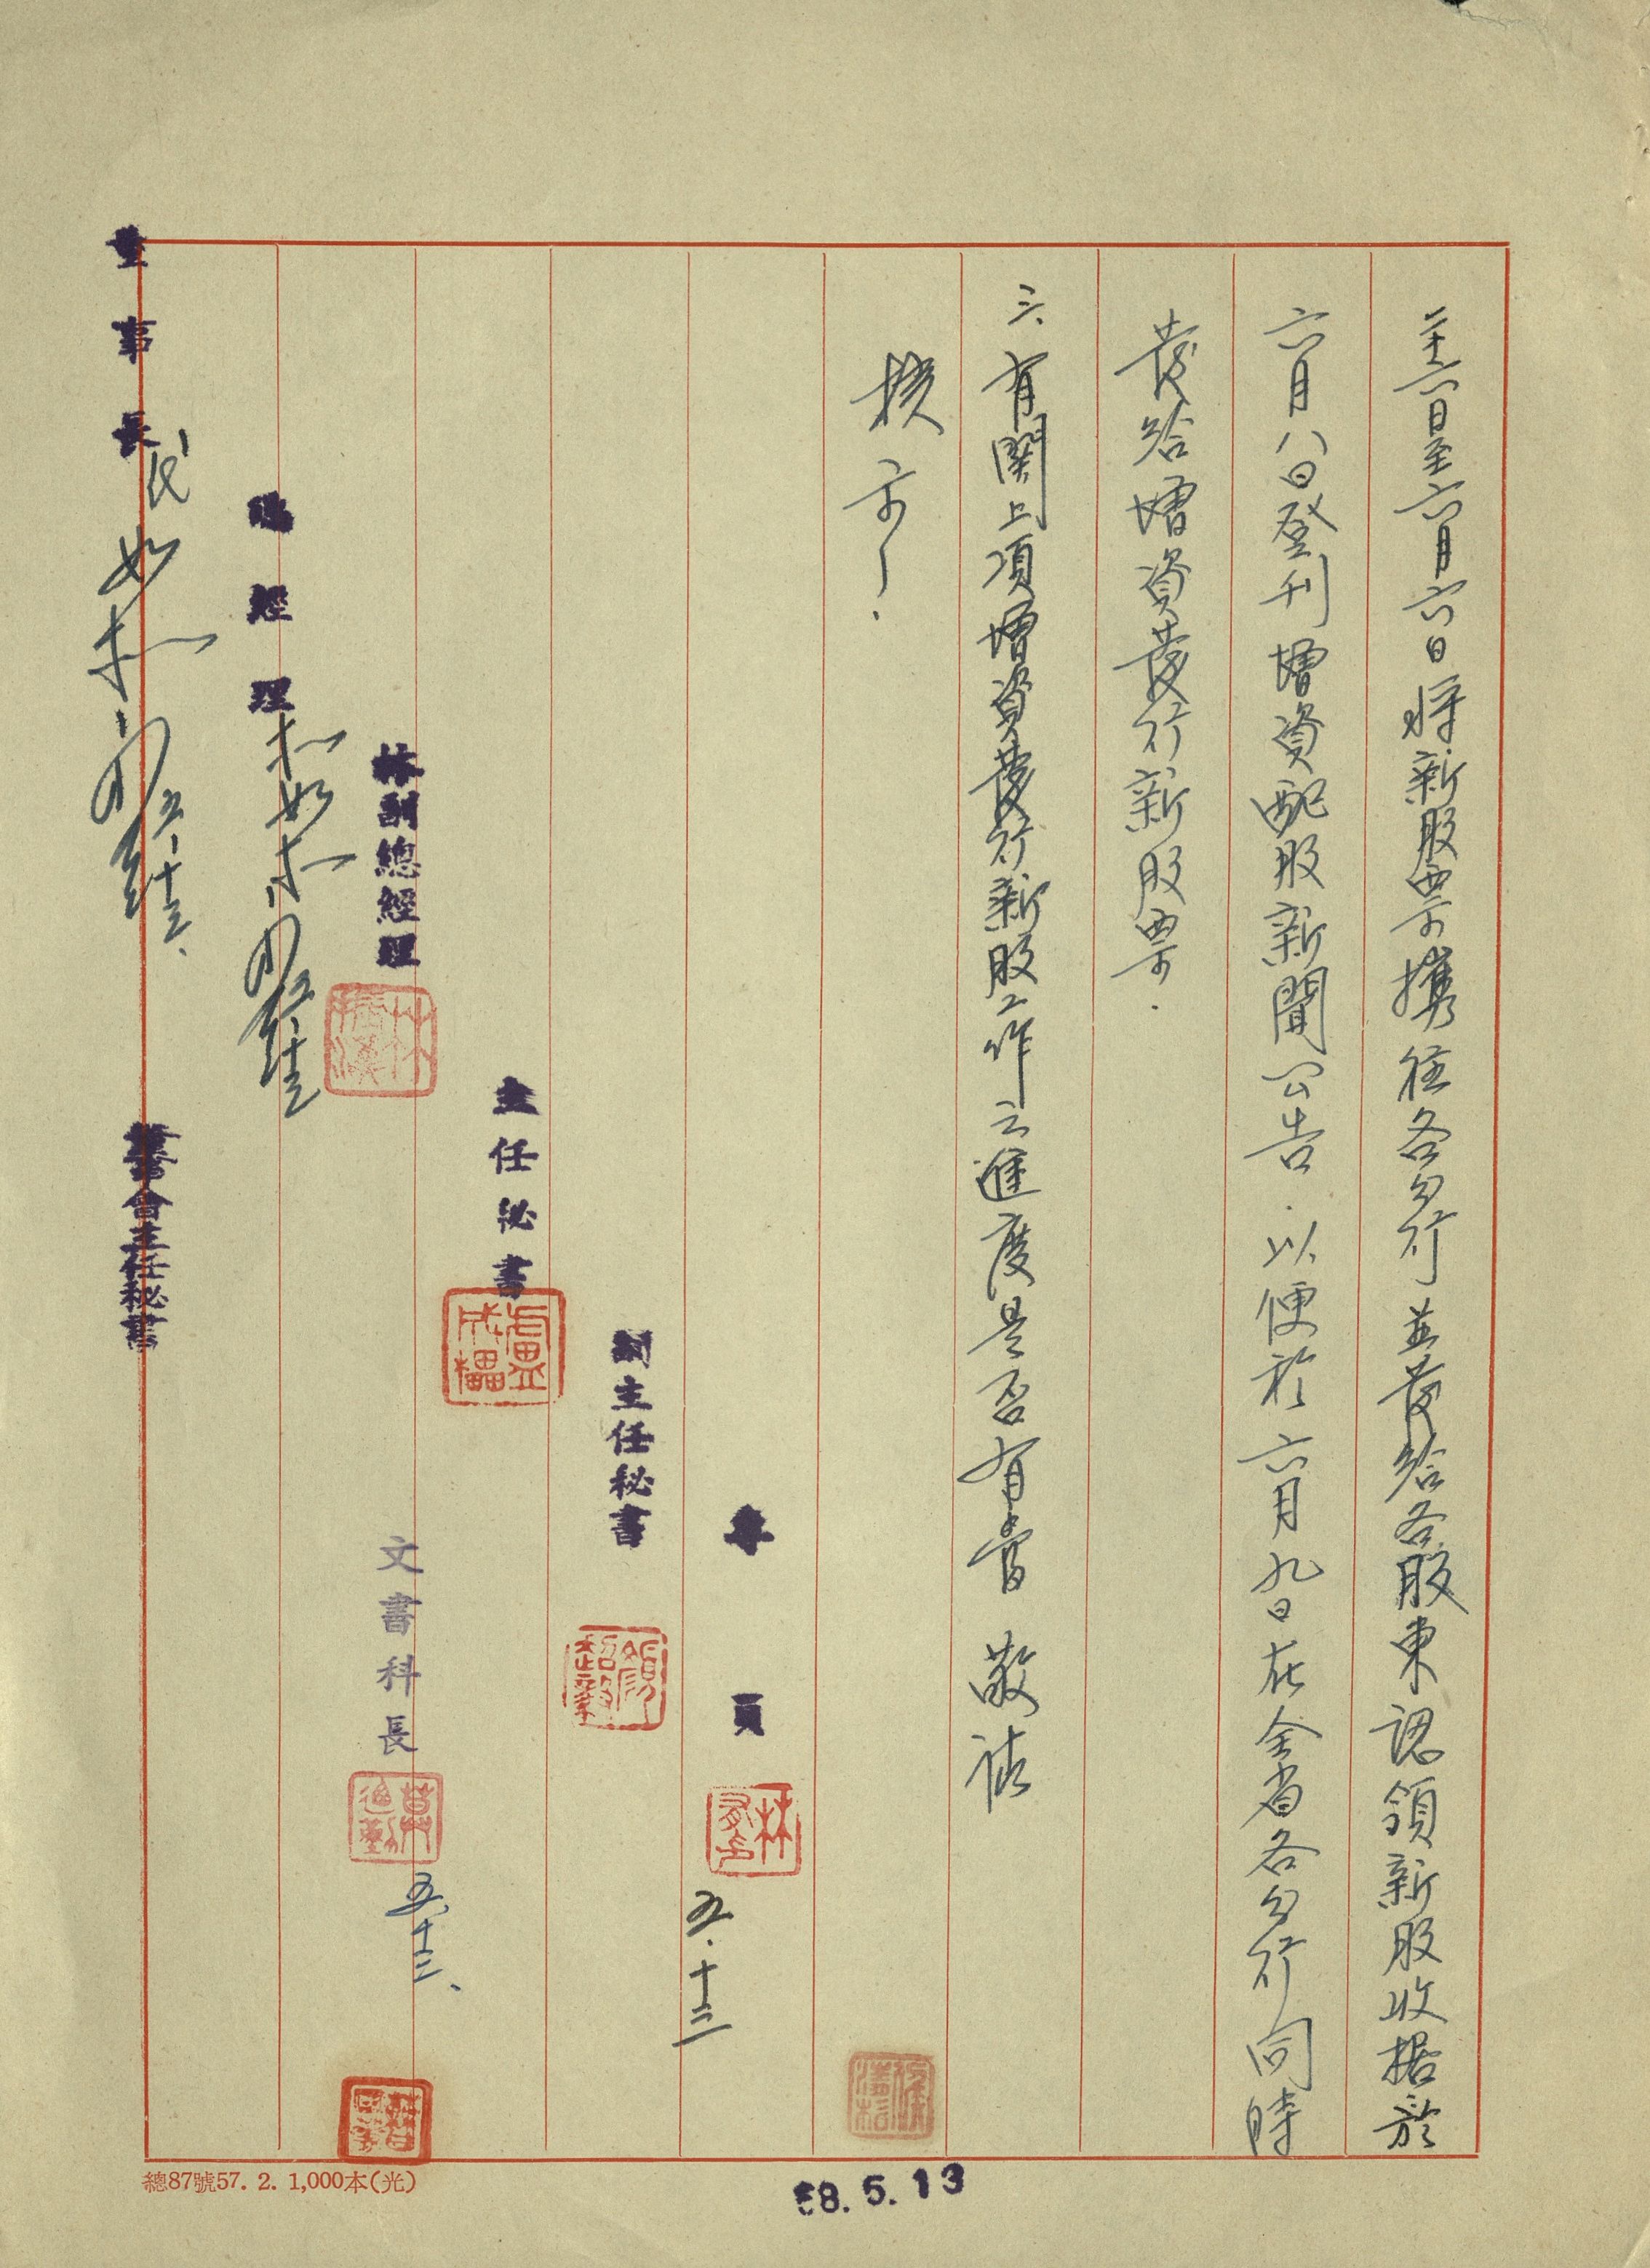 六日至六月六日將新股票攜往各分行並發給各股東認領新股收据於
六月八日登刊增資配股新聞公告．以便於六月九日在全省各分行同時
發給增資發行新股票．
三、有関上項增資發行新股工作之進度是否有當 敬請
核示！
專員
林
五．十三
副主任秘書
顏
主任秘書
盧
林副總經理
林
文書科長
莫
五、十三、
總經理
如
董事長
代
如
董事會主任秘書
總87號57. 2. 1,000本(光)
58. 5. 13